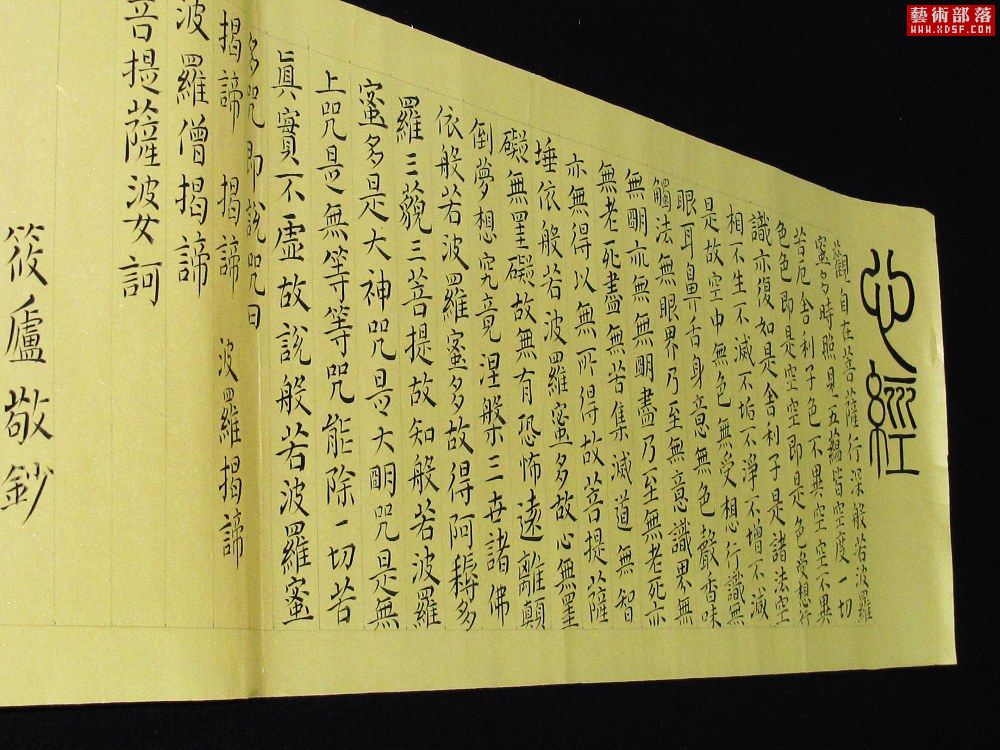 心經
觀自在菩薩行深般若波羅
蜜多時照見五蘊皆空度一切
苦厄舍利子色不異空空不異
色色即是空空即是色受想行
識亦復如是舍利子是諸法空
相不生不滅不垢不淨不增不減
是故空中無色無受想行識無
眼耳鼻舌身意無色聲香味
觸法無眼界乃至無意識界無
無明亦無無明盡乃至無老死亦
無老死盡無苦集滅道無智
亦無得以無所得故菩提薩
埵依般若波羅蜜多故心無罣
礙無罣礙故無有恐怖遠離顛
倒夢想究竟涅槃三世諸佛
依般若波羅蜜多故得阿耨多
羅三藐三菩提故知般若波羅
蜜多是大神咒是大明咒是無
上咒是無等等咒能除一切苦
真實不虛故說般若波羅蜜
多咒即說咒曰
揭諦 揭諦 波羅揭諦
波羅僧揭諦
菩提薩波女訶
筱廬敬鈔
藝術部落
WWW.XDSF.COM